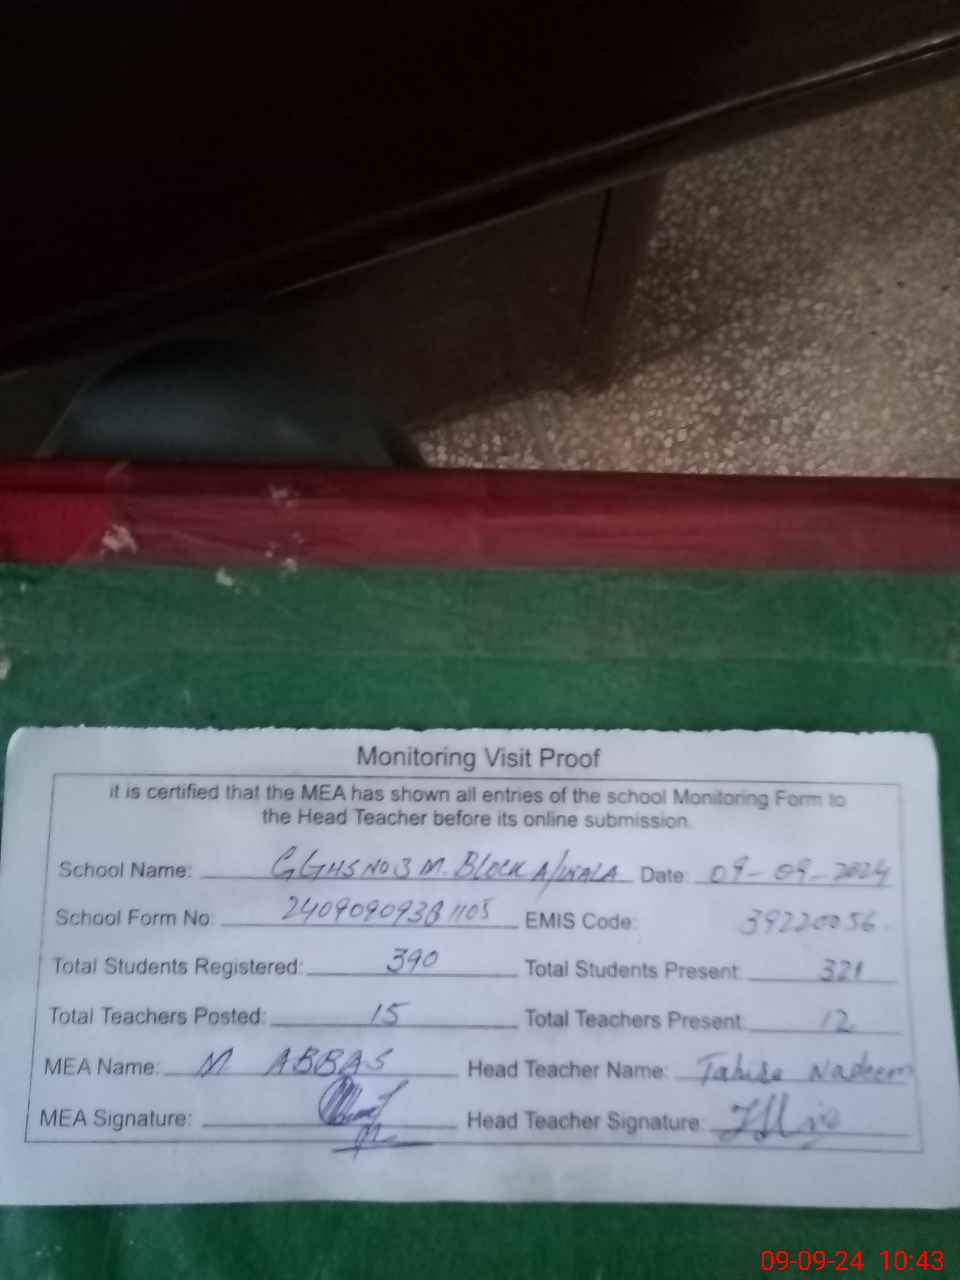 Monitoring Visit Proof
it is certified that the MEA has shown all entries of the school Monitoring Form to
the Head Teacher before its online submission.
School Name: GGHS NO 3 M. BLOCK A/WALA Date: 09-09-2024
School Form No: 24090909381105 EMIS Code: 39220056
Total Students Registered: 390 Total Students Present: 321
Total Teachers Posted: 15 Total Teachers Present: 12
MEA Name: M. ABBAS Head Teacher Name: Nadeem
MEA Signature: Head Teacher Signature:
09-09-24 10:43